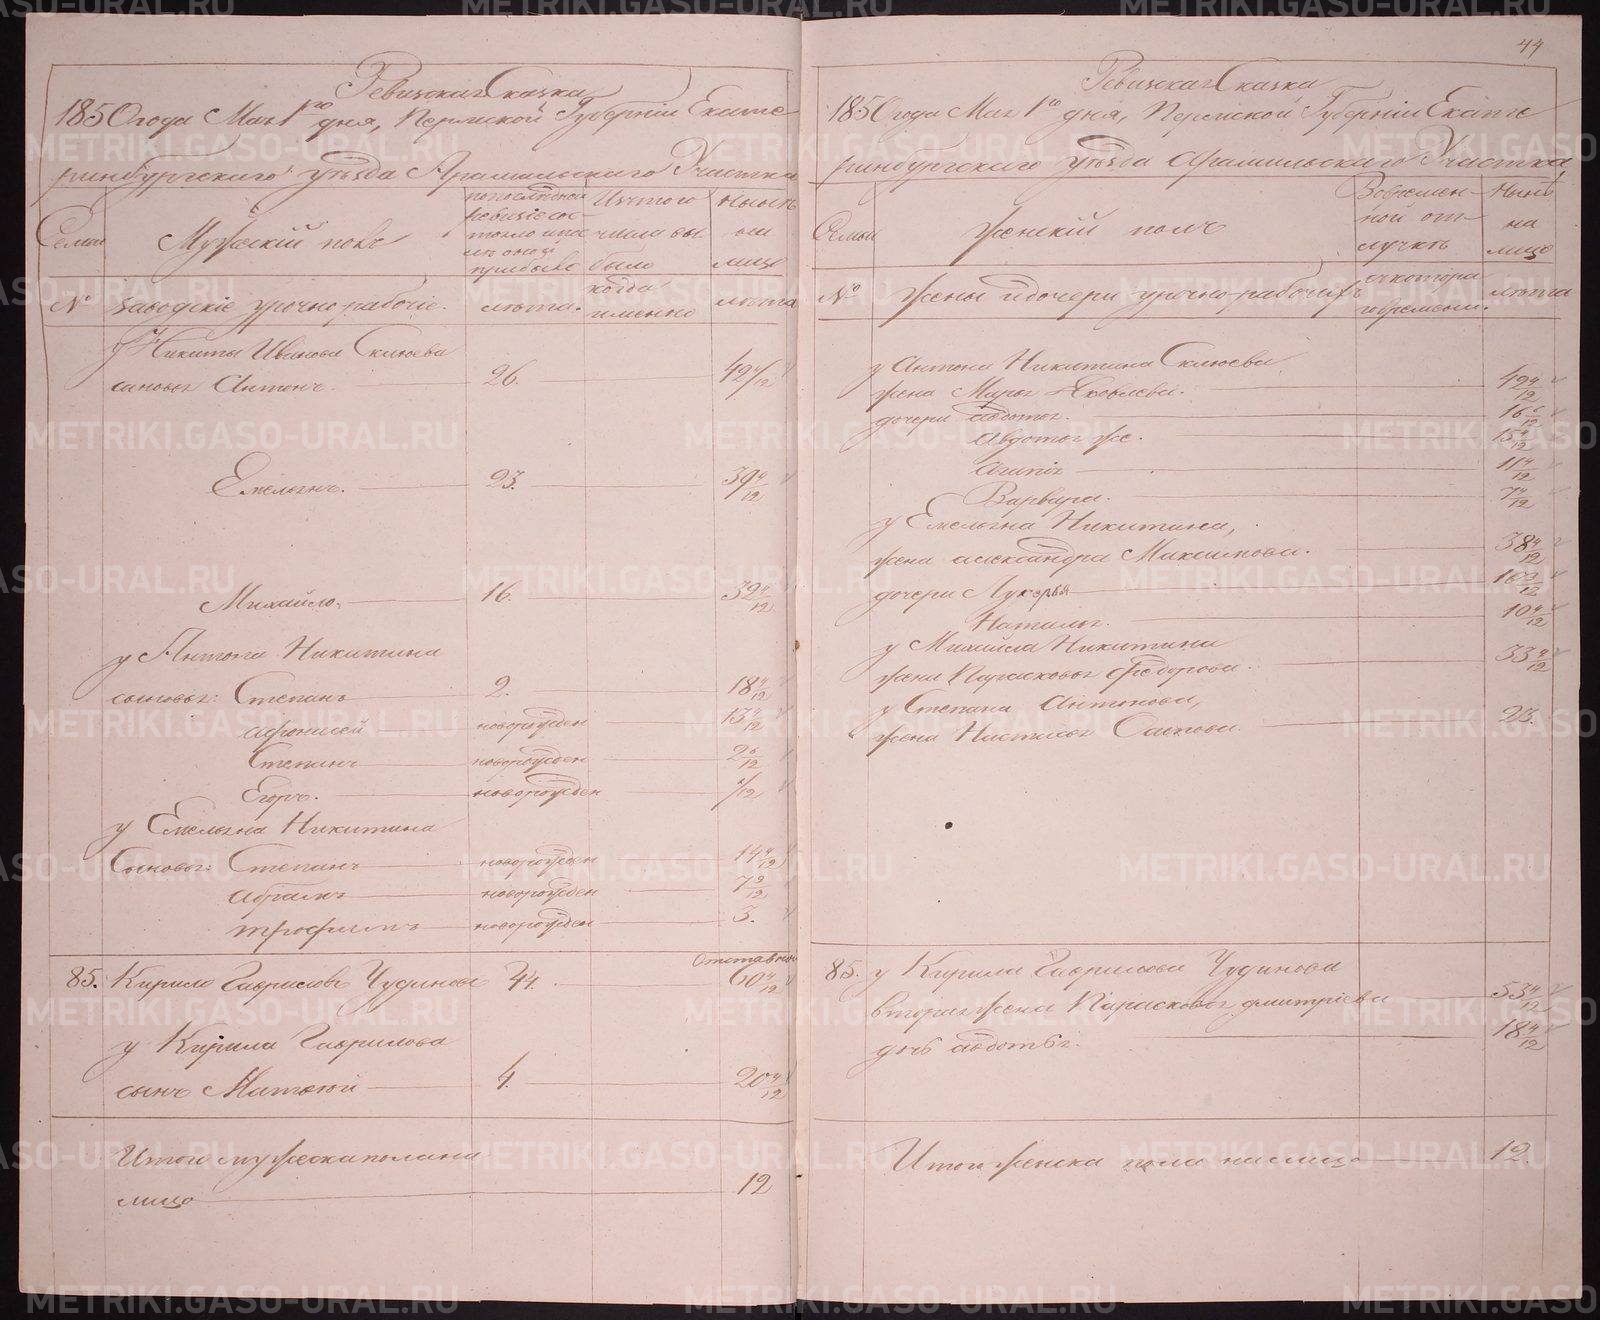 Ревизская Сказка
1850 года Мая 1го дня, Пермской Губерніи Екате
ринбургскаго уѣзда Арамильскаго Участка
Семьи
Мужескій полъ
по последней
ревизіе сос-
тояло и пос
лѣ оной
прибыло
Изъ того
числа вы
было
Нынѣ
на
лицо
№
Заводскіе урочно рабочіе.
лѣта.
когда
именно
лѣта
у Никиты Иванова Склюева
сыновья Антонъ. 26. 42 4/12
Емельянъ. 23. 39 4/12
Михайло. 16. 32 4/12
у Антона Никитина
сыновья: Степанъ 2. 18 4/12
Афонасей новорожден 13 4/12
Степанъ новорожден 2 6/12
Егоръ. новорожден /12
у Емельяна Никитина
Сыновья: Степанъ новорожден 14 4/12
Абрамъ новорожден 7 9/12
Трофимъ новорожден 3.
Отставной
85. Кирило Гавриловъ Чудиновъ 44. 60 4/12
у Кирила Гаврилова
сынъ Матвей 4. 20 4/12
Итого мужеска пола на
лицо 12
44
Ревизская Сказка
1850 года Мая 1го дня, Пермской Губерніи Екате
ринбургскаго уѣзда Арамильскаго Участка
Семьи
Женскій полъ
Во времен-
ной от-
лучкѣ
Нынѣ
на
лицо
№
Жены и дочери урочно-рабочихъ
съ котора
го времени.
лѣта
у Антона Никитина Склюева
жена Марья Яковлева. 42 4/12
дочери Авдотья. 16 6/12
Авдотья же. 15 4/12
Агапія 11 4/12
Варвара. 7 4/12
у Емельяна Никитина,
жена Александра Максимова. 38 4/12
дочери Лукерья 16 3/12
Наталья. 10 4/12
у Михайла Никитина
жена Парасковья Федорова. 33 4/12
у Степана Антонова,
жена Настасья Осипова. 23.
85. у Кирила Гаврилова Чудинова
вторая жена Парасковья Дмитріева 53 4/12
дочь Авдотья. 18 4/12
Итого женска пола на лицо 12.
METRIKI.GASO-URAL.RU